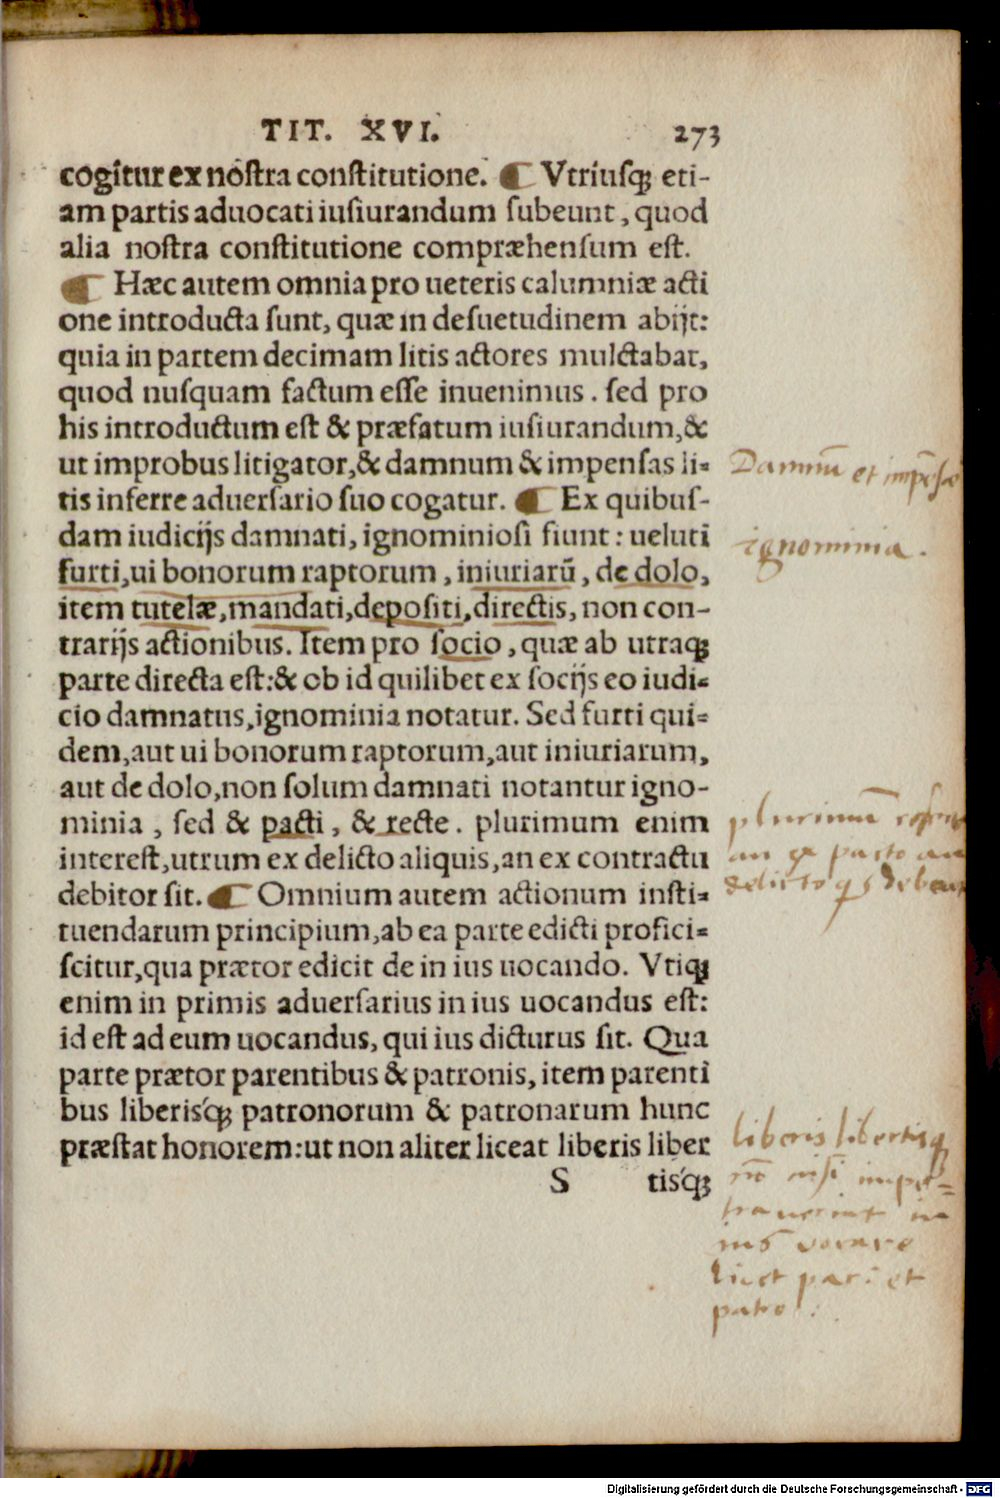 TIT. XVI. 273
cogitur ex nostra constitutione. ¶ Vtriusq; eti-
am partis aduocati iusiurandum subeunt, quod
alia nostra constitutione compræhensum est.
¶ Hæc autem omnia pro ueteris calumniæ acti
one introducta sunt, quæ in desuetudinem abijt:
quia in partem decimam litis actores mulctabat,
quod nusquam factum esse inuenimus. sed pro
his introductum est & præfatum iusiurandum, &
ut improbus litigator, & damnum & impensas li-
tis inferre aduersario suo cogatur. ¶ Ex quibus-
dam iudicijs damnati, ignominiosi fiunt: ueluti
furti, ui bonorum raptorum, iniuriarũ, de dolo,
item tutelæ, mandati, depositi, directis, non con-
trarijs actionibus. Item pro socio, quæ ab utraq;
parte directa est: & ob id quilibet ex socijs eo iudi-
cio damnatus, ignominia notatur. Sed furti qui-
dem, aut ui bonorum raptorum, aut iniuriarum,
aut de dolo, non solum damnati notantur igno-
minia, sed & pacti, & recte. plurimum enim
interest, utrum ex delicto aliquis, an ex contractu
debitor sit. ¶ Omnium autem actionum insti-
tuendarum principium, ab ea parte edicti profici-
scitur, qua prætor edicit de in ius uocando. Vtiq;
enim in primis aduersarius in ius uocandus est:
id est ad eum uocandus, qui ius dicturus sit. Qua
parte prætor parentibus & patronis, item parenti
bus liberisq́; patronorum & patronarum hunc
præstat honorem: ut non aliter liceat liberis liber
S tisq́;
Damnũ et impẽsæ
ignominia.
plurimũ
an ex pacto an
delicto
liberis libertisq;
nõ nisi impe-
trauerint in
ius vocare
licet et
patro
Digitalisierung gefördert durch die Deutsche Forschungsgemeinschaft - DFG